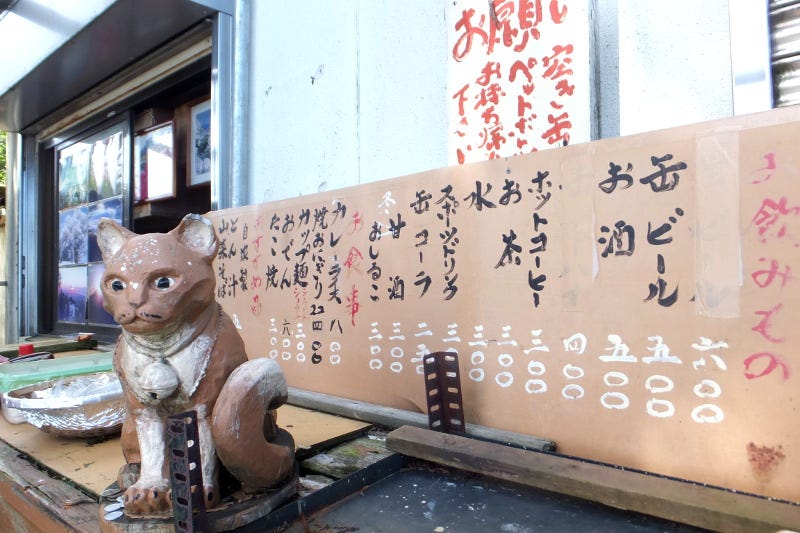 お願い
空き缶
ペットボト
お持ち帰
下さい
お飲みもの
六〇〇
缶ビール 五〇〇
お酒 五〇〇
四〇〇
ホットコーヒー 三〇〇
お茶 三〇〇
水 三〇〇
スポーツドリンク 三
缶コーラ 二五〇
甘酒 三〇〇
冬 おしるこ 三〇〇
お食事
カレーライス 八〇〇
焼おにぎり 2コ 四〇〇
カップ麺 三〇〇
おでん 六〇〇
たこ焼 三〇〇
おすすめ品
自家製
とん汁
山菜そば